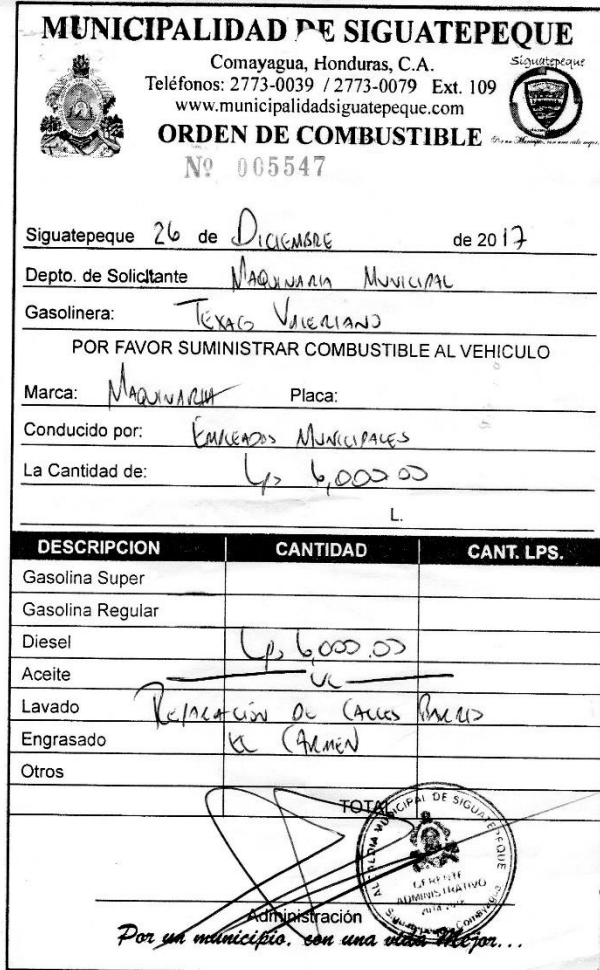 MUNICIPALIDAD DE SIGUATEPEQUE
Comayagua, Honduras, C.A.
Siguatepeque
Teléfonos: 2773-0039 / 2773-0079 Ext. 109
www.municipalidadsiguatepeque.com
ORDEN DE COMBUSTIBLE
Nº 005547
Siguatepeque 26 de DICIEMBRE de 2017
Depto. de Solicitante MAQUINARIA MUNICIPAL
Gasolinera: TEXACO VALERIANO
POR FAVOR SUMINISTRAR COMBUSTIBLE AL VEHICULO
Marca: MAQUINARIA Placa:
Conducido por: EMPLEADOS MUNICIPALES
La Cantidad de: Lps 6,000.00
L.
DESCRIPCION CANTIDAD CANT. LPS.
Gasolina Super
Gasolina Regular
Diesel Lps 6,000.00
Aceite UL
Lavado REPARACIÓN DE CALLES BARRIO
Engrasado EL CARMEN
Otros
TOTAL
ALCALDIA MUNICIPAL DE SIGUATEPEQUE
GERENTE
ADMINISTRATIVO
Administración
Por un municipio, con una vida Mejor...